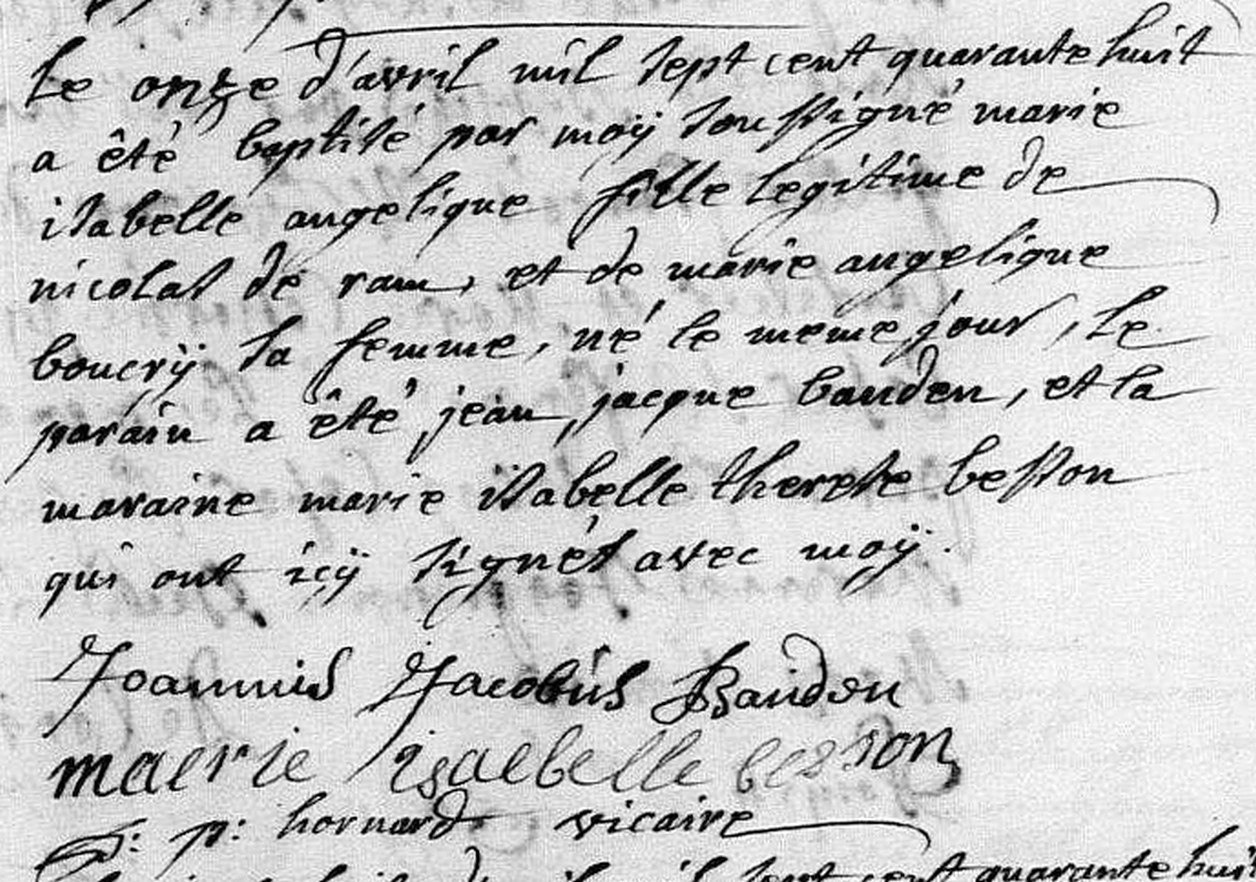 Le onze d'avril mil sept cent quarante huit
a êté baptisé par moÿ soussigné marie
isabelle angelique fille legitime de
nicolas de ram, et de marie angelique
boucrÿ sa femme, né le meme jour, Le
parain a êté jean jacque bauden, et la
maraine marie isabelle therese besson
qui ont icÿ signés avec moÿ.
Joannis Jacobus Bauden
maerie isaebelle besson
p: hornard vicaire
sept cent quarante huit